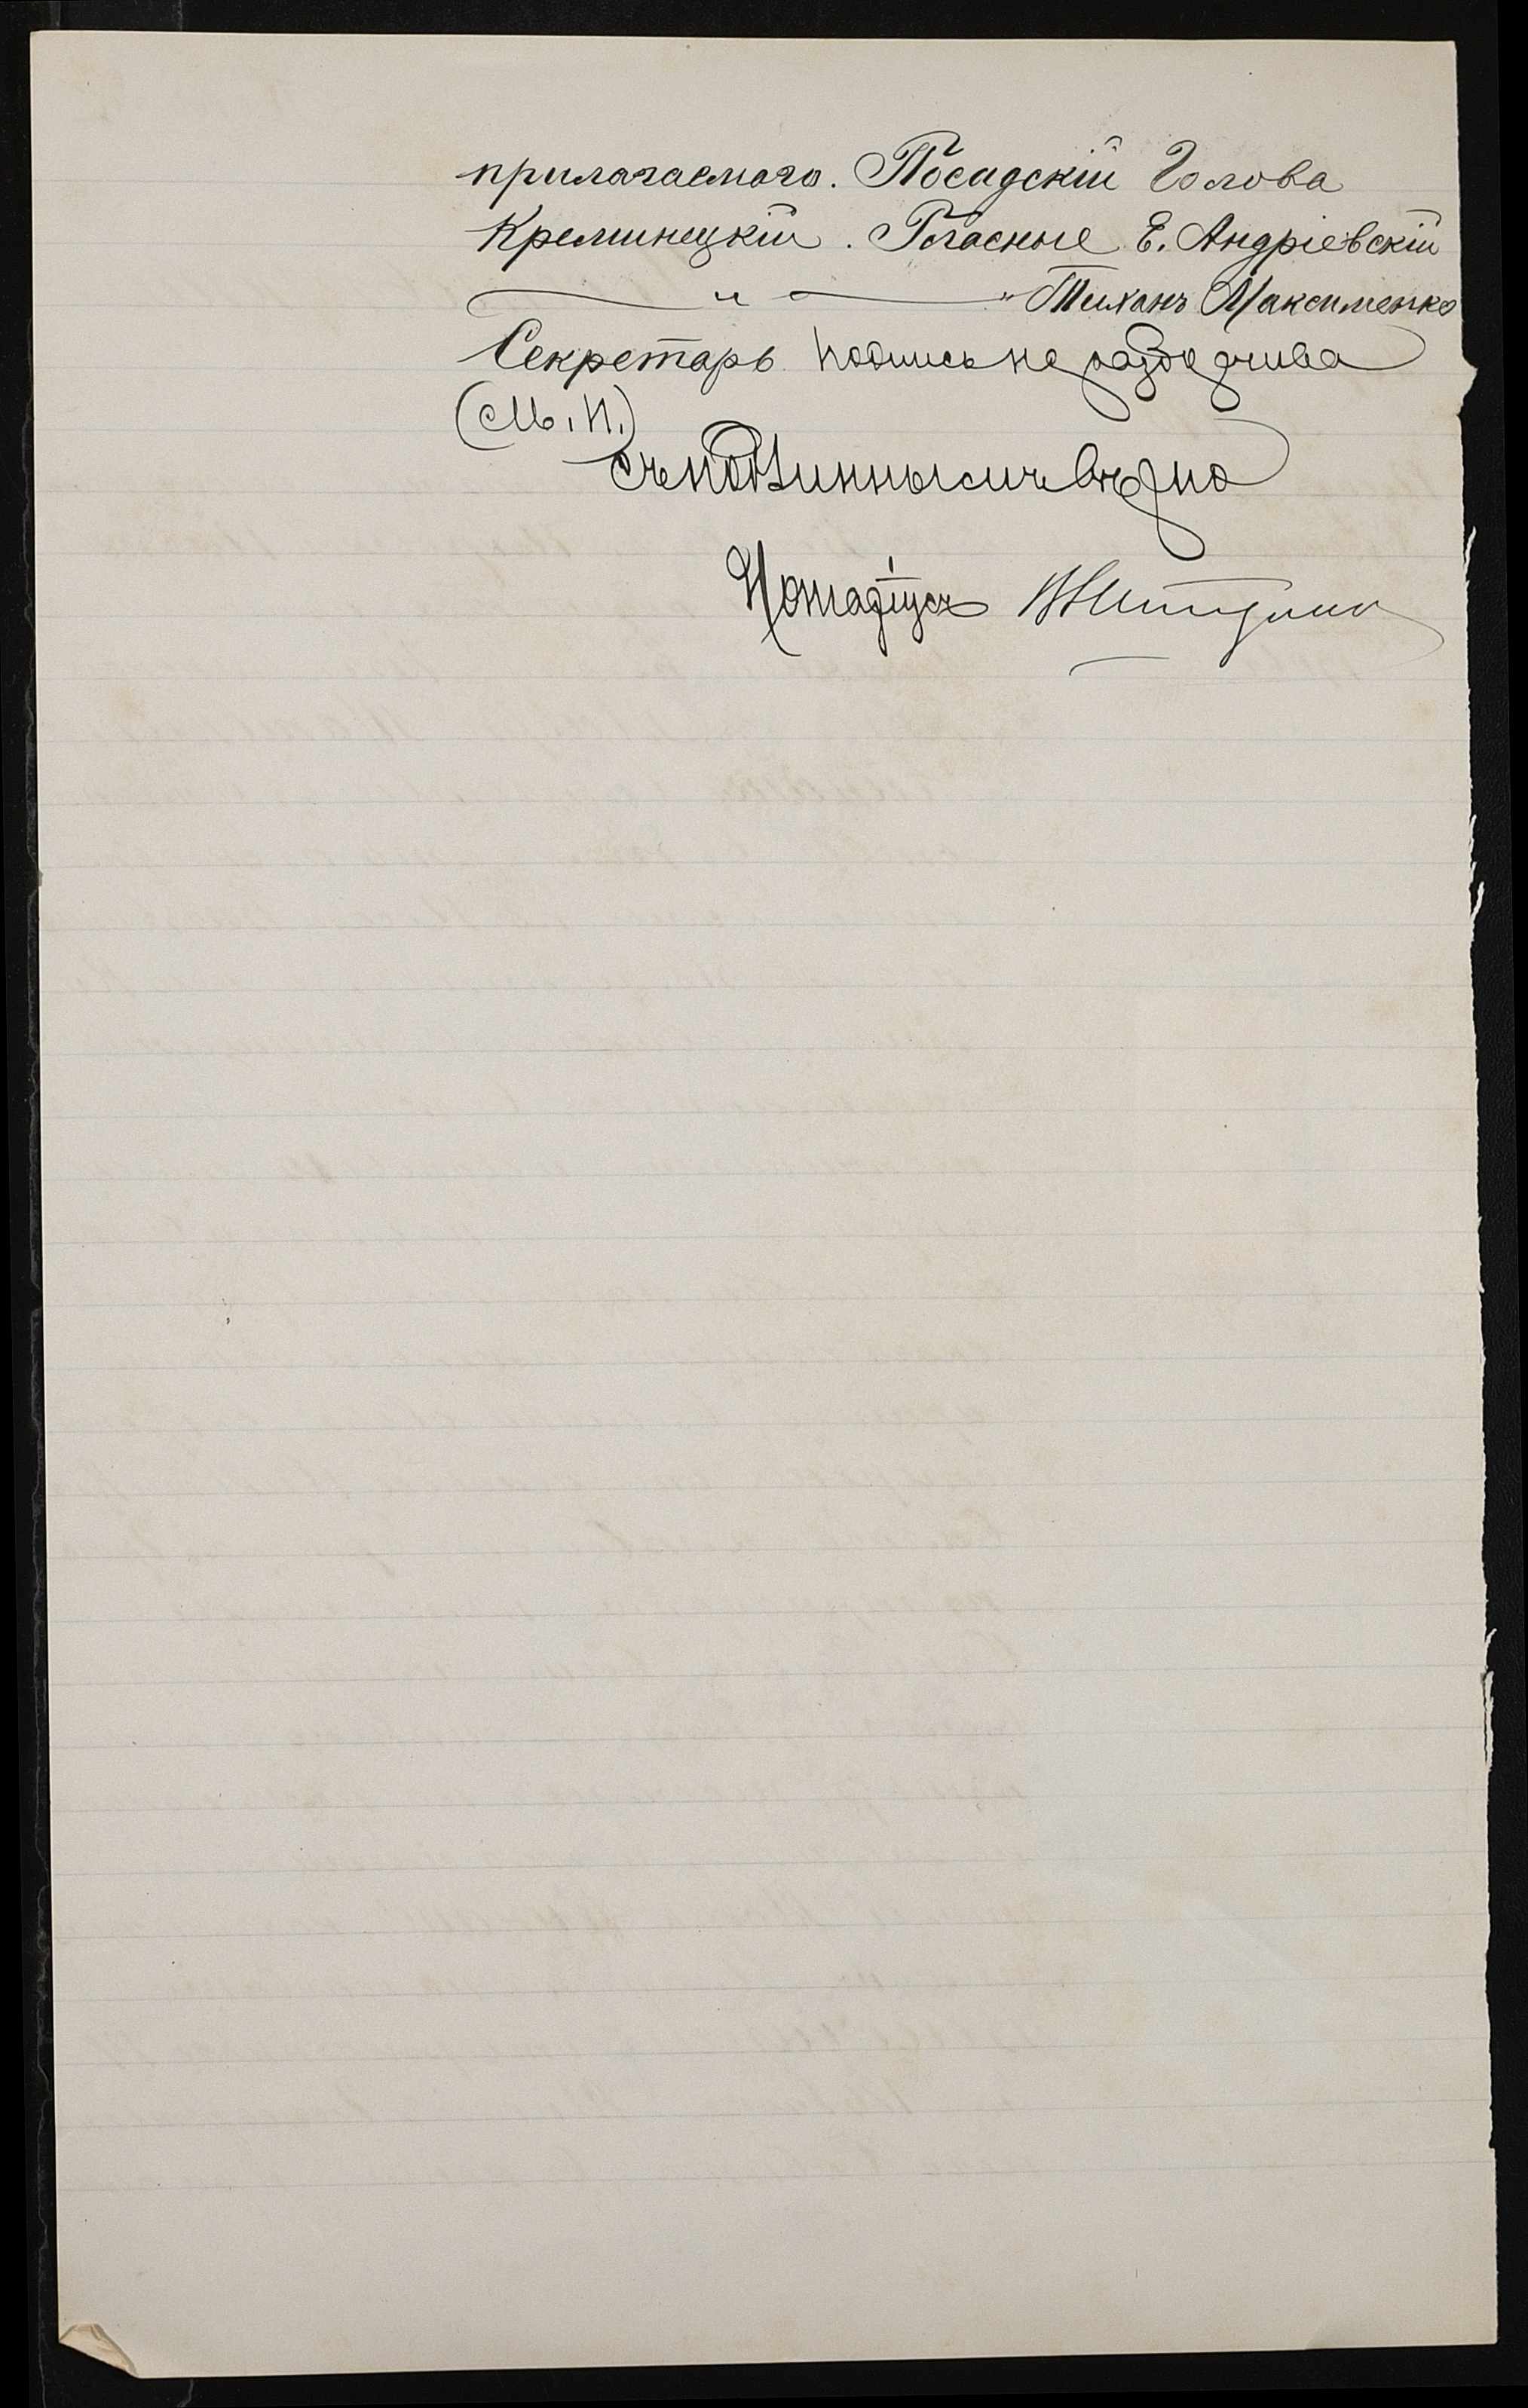 прилагаемаго. Посадскій Голова
Креминецкій. Гласные Е. Андріевскій
— " — " Тихонъ Максименко
Секретарь подпись неразборчива
(М. П.)
Съ подлиннымъ вѣрно
Нотаріусъ